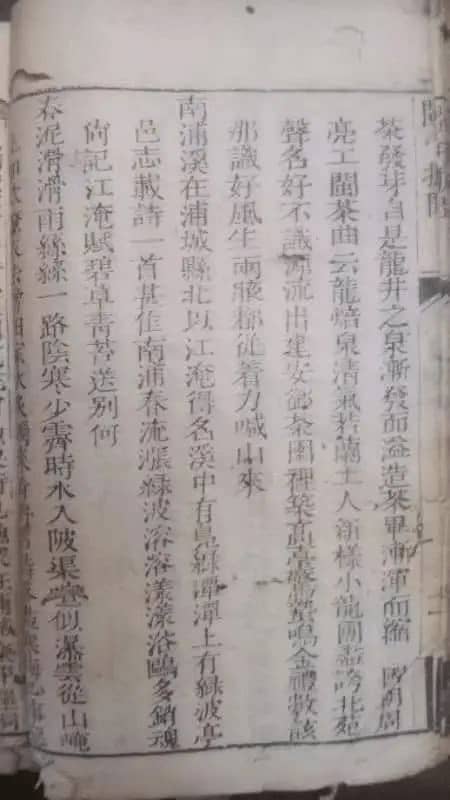 茶發芽自是龍井之泉漸發而溢造茶畢漸渾而縮　國朝周
亮工閩茶曲云龍焙泉清氣若蘭士人新樣小龍團盡誇北苑
聲名好不識源流出建安御茶園裡築高臺驚蟄鳴金禮數該
那識好風生兩腋都從着力喊山來
南浦溪在浦城縣北以江淹得名溪中有綠潭潭上有綠波亭
邑志載詩一首甚佳南浦春流漲綠波溶溶漾漾浴鷗多銷魂
尚記江淹賦碧草青苔送別何
春泥滑滑雨絲絲一路陰寒少霽時水入陂渠聲似瀑雲從山崦